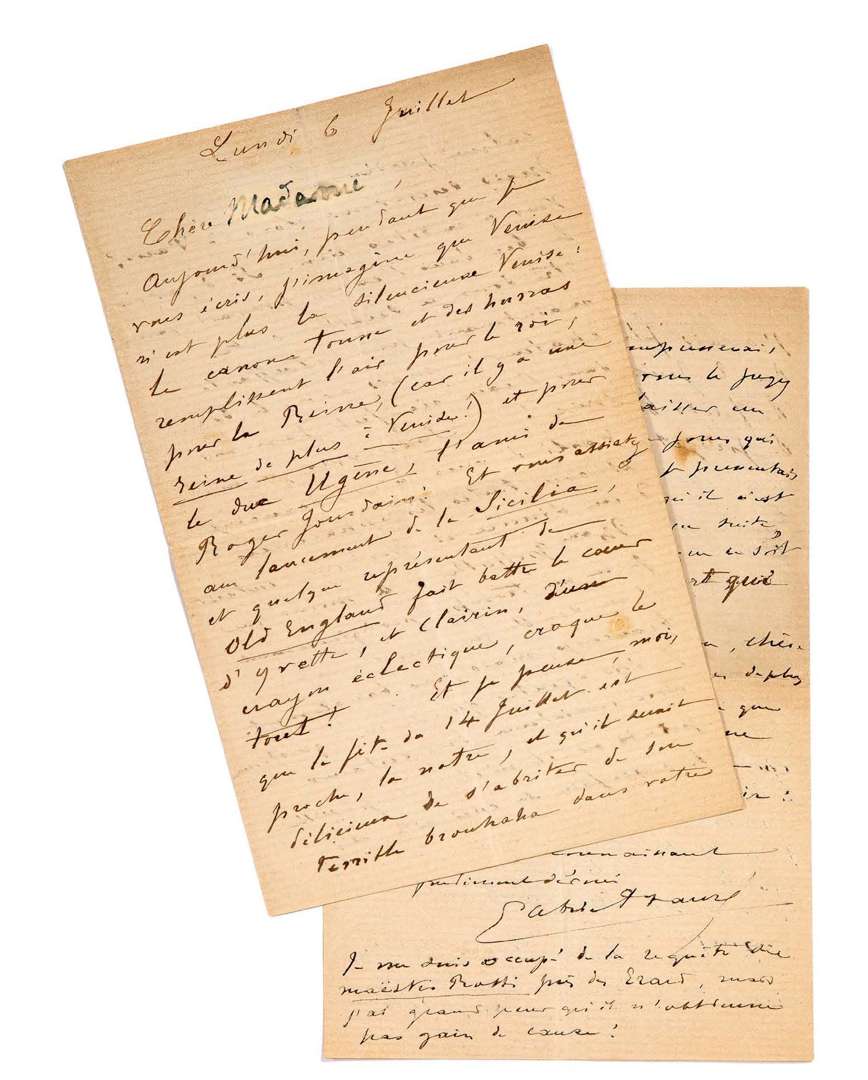 Lundi 6 Juillet
Chère Madame,
Aujourd'hui, pendant que je
vous écris, j'imagine que Venise
n'est plus la silencieuse Venise :
le canon tonne et des hurras
remplissent l'air pour le roi,
pour la Reine, (car il y a une
reine de plus à Venise !) et pour
le duc Ugène, l'ami de
Roger Jourdain ! Et vous assistez
au lancement de la Sicilia,
et quelque représentant de
Old England fait battre le cœur
d'Yvette, et Clairin, d'un
crayon éclectique, croque le
tout ! Et je pense, moi,
que la fête du 14 Juillet est
proche, la nôtre, et qu'il serait
délicieux de s'abriter de son
terrible brouhaha dans votre
vous le
laisser un
jours qui
qu'il n'est
suite
en soit
qui
, chère
de plus
que
connaissant
Gabriel Fauré
Je me suis occupé de la requête du
maëstro Rossi près des Erard, mais
j'ai grand peur qu'il n'obtienne
pas gain de cause !